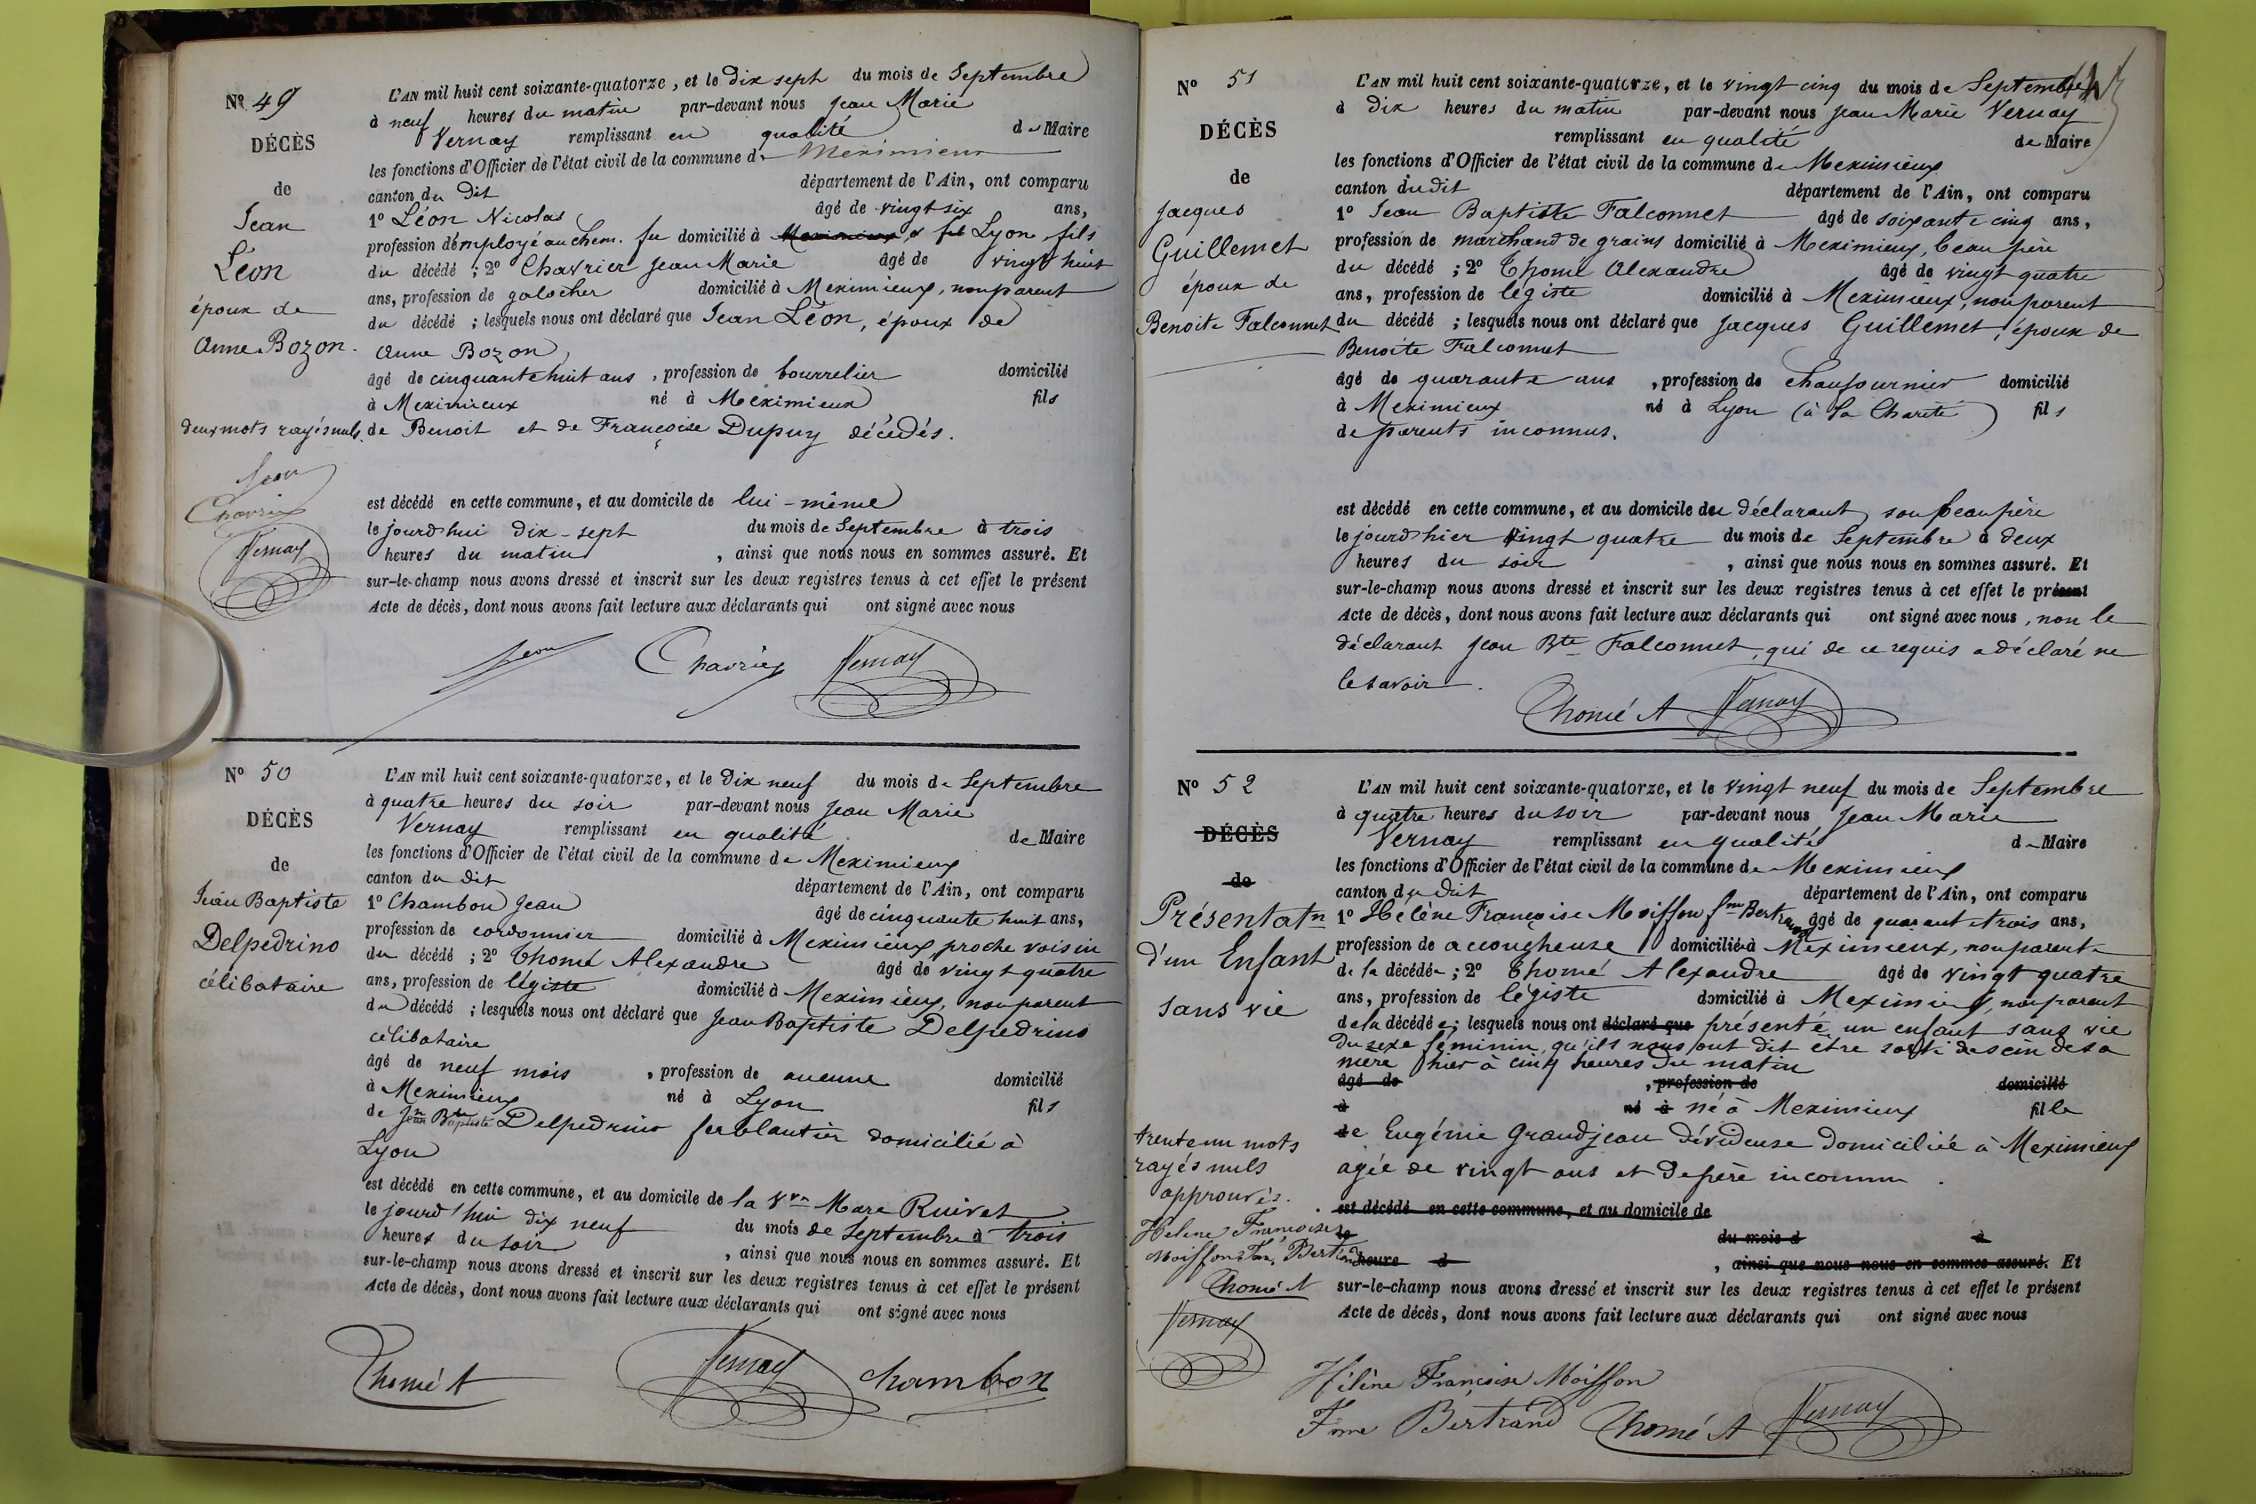 Nº 49
DÉCÈS
de
Jean
Léon
époux de
Anne Bozon.
deux mots rayés nuls.
Léon
Chavrier
Vernay
L'AN mil huit cent soixante-quatorze, et le dix sept du mois de Septembre
à neuf heures du matin par-devant nous Jean Marie
Vernay remplissant en qualité de Maire
les fonctions d'Officier de l'état civil de la commune de Meximieux
canton du dit département de l'Ain, ont comparu
1º Léon Nicolas âgé de vingt six ans,
profession d'employé au chem. fer domicilié à Meximieux, Lyon, fils
du décédé ; 2º Chavrier Jean Marie âgé de vingt huit
ans, profession de galocher domicilié à Meximieux, non parent
du décédé ; lesquels nous ont déclaré que Jean Léon, époux de
Anne Bozon
âgé de cinquante huit ans, profession de bourrelier domicilié
à Meximieux né à Meximieux fils
de Benoit et de Françoise Dupuy décédés.
est décédé en cette commune, et au domicile de lui-même
le jourd'hui dix-sept du mois de Septembre à trois
heures du matin, ainsi que nous nous en sommes assuré. Et
sur-le-champ nous avons dressé et inscrit sur les deux registres tenus à cet effet le présent
Acte de décès, dont nous avons fait lecture aux déclarants qui ont signé avec nous
Léon Chavrier Vernay
Nº 50
DÉCÈS
de
Jean Baptiste
Delpedrino
célibataire
L'AN mil huit cent soixante-quatorze, et le dix neuf du mois de Septembre
à quatre heures du soir par-devant nous Jean Marie
Vernay remplissant en qualité de Maire
les fonctions d'Officier de l'état civil de la commune de Meximieux
canton du dit département de l'Ain, ont comparu
1º Chambon Jean âgé de cinquante huit ans,
profession de cordonnier domicilié à Meximieux proche voisin
du décédé ; 2º Thomé Alexandre âgé de vingt quatre
ans, profession de légiste domicilié à Meximieux, non parent
du décédé ; lesquels nous ont déclaré que Jean Baptiste Delpedrino
célibataire
âgé de neuf mois, profession de aucune domicilié
à Meximieux né à Lyon fils
de Jn Bte Jean Baptiste Delpedrino ferblantier domicilié à
Lyon
est décédé en cette commune, et au domicile de la Vve Mare Ruivet
le jourd'hui dix neuf du mois de Septembre à trois
heures du soir, ainsi que nous nous en sommes assuré. Et
sur-le-champ nous avons dressé et inscrit sur les deux registres tenus à cet effet le présent
Acte de décès, dont nous avons fait lecture aux déclarants qui ont signé avec nous
Thomé A Vernay Chambon
Nº 51
DÉCÈS
de
Jacques
Guillemet
époux de
Benoite Falconnet
L'AN mil huit cent soixante-quatorze, et le vingt cinq du mois de Septembre
à dix heures du matin par-devant nous Jean Marie Vernay
remplissant en qualité de Maire
les fonctions d'Officier de l'état civil de la commune de Meximieux
canton du dit département de l'Ain, ont comparu
1º Jean Baptiste Falconnet âgé de soixante cinq ans,
profession de marchand de grains domicilié à Meximieux, beau père
du décédé ; 2º Thomé Alexandre âgé de vingt quatre
ans, profession de légiste domicilié à Meximieux, non parent
du décédé ; lesquels nous ont déclaré que Jacques Guillemet, époux de
Benoite Falconnet
âgé de quarante ans, profession de chaufournier domicilié
à Meximieux né à Lyon (à la Charité) fils
de parents inconnus.
est décédé en cette commune, et au domicile du déclarant son beau père
le jourd'hier vingt quatre du mois de Septembre à deux
heures du soir, ainsi que nous nous en sommes assuré. Et
sur-le-champ nous avons dressé et inscrit sur les deux registres tenus à cet effet le présent
Acte de décès, dont nous avons fait lecture aux déclarants qui ont signé avec nous, non le
déclarant Jean Bte Falconnet, qui de ce requis a déclaré ne
le savoir.
Thomé A Vernay
Nº 52
DÉCÈS
de
Présentatn
d'un Enfant
sans vie
trente un mots
rayés nuls
approuvés.
Hélène Françoise
Moiffon Fme Bertrand
Thomé A
Vernay
L'AN mil huit cent soixante-quatorze, et le vingt neuf du mois de Septembre
à quatre heures du soir par-devant nous Jean Marie
Vernay remplissant en qualité de Maire
les fonctions d'Officier de l'état civil de la commune de Meximieux
canton du dit département de l'Ain, ont comparu
1º Hélène Françoise Moiffon fme Bertrand âgé de quarante trois ans,
profession de accoucheuse domiciliée à Meximieux, non parente
de la décédée ; 2º Thomé Alexandre âgé de vingt quatre
ans, profession de légiste domicilié à Meximieux, non parent
de la décédée ; lesquels nous ont déclaré que présenté un enfant sans vie
du sexe féminin, qu'ils nous ont dit être sorti du sein de sa
mère hier à cinq heures du matin
âgé de , profession de domicilié
à né à né à Meximieux fille
de Eugénie Grandjean dévideuse domiciliée à Meximieux
agée de vingt ans et de père inconnu.
est décédé en cette commune, et au domicile de
le du mois d à
heure d , ainsi que nous nous en sommes assuré. Et
sur-le-champ nous avons dressé et inscrit sur les deux registres tenus à cet effet le présent
Acte de décès, dont nous avons fait lecture aux déclarants qui ont signé avec nous
Hélène Françoise Moiffon
Fme Bertrand Thomé A Vernay